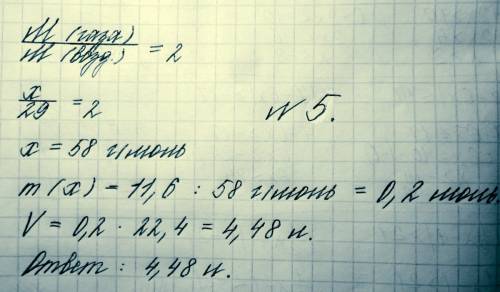 M (газа)
M (возд.) = 2
x
29 = 2
N 5.
x = 58 г/моль
m (x) = 11,6 : 58 г/моль = 0,2 моль
V = 0,2 · 22,4 = 4,48 л.
Ответ : 4,48 л.